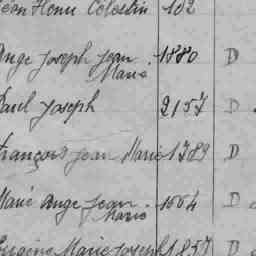 Jean Henri Célestin 182
Ange Joseph Jean 1880 D
Marie
Paul Joseph 2157 D
François Jean Marie 1789 D
Marie Ange Jean 1664 D
Marie
Eugène Marie Joseph 1857 D